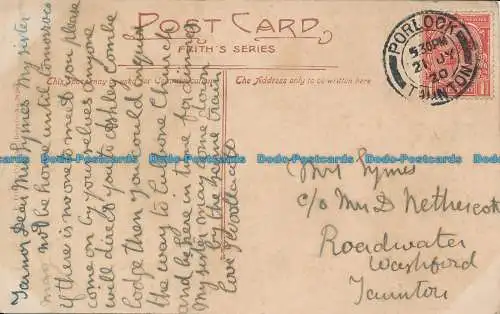 POST CARD
FRITH'S SERIES
This Space may be used for Communication.
The Address only to be written here
PORLOCK
5 30 PM
21 JY
20
TAUNTON
Dear Mrs Symes My sister
may not be home until tomorrow
if there is no one to meet you please
come on by yourselves anyone
will direct you to Ashley Combe
lodge then you could enquire
the way to Culbone Church
and be here in time for dinner
My sister may come down
by the same train
Love
Mrs Symes
c/o Mrs D Nethercott
Roadwater
Washford
Taunton
Dodo-Postcards Dodo-Postcards Dodo-Postcards Dodo-Postcards Dodo-Postcards